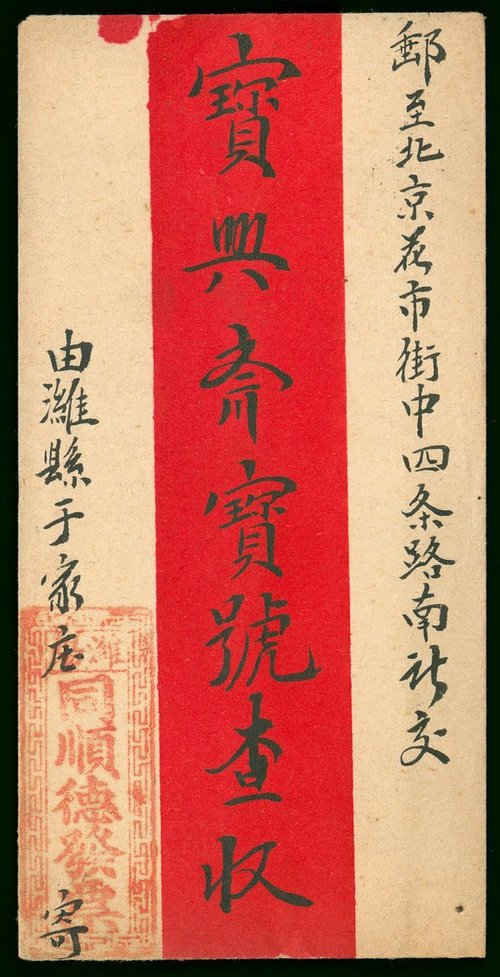 郵至北京花市街中四条路南社交
寶興斋寶號查收
由濰縣于家庄
寄
同順德發票